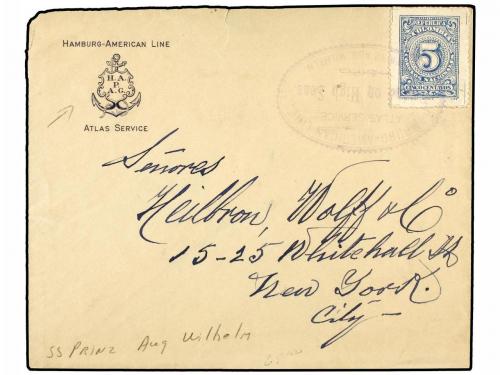 HAMBURG-AMERICAN LINE
H.A.
P.
A.G.
ATLAS SERVICE
REPUBLICA
COLOMBIA
5
CINCO CENTAVOS
on High Seas
ATLAS SERVICE
Señores
Heilbron, Wolff & Co
15-25 Whitehall St
New York.
City-
SS PRINZ Aug Wilhelm